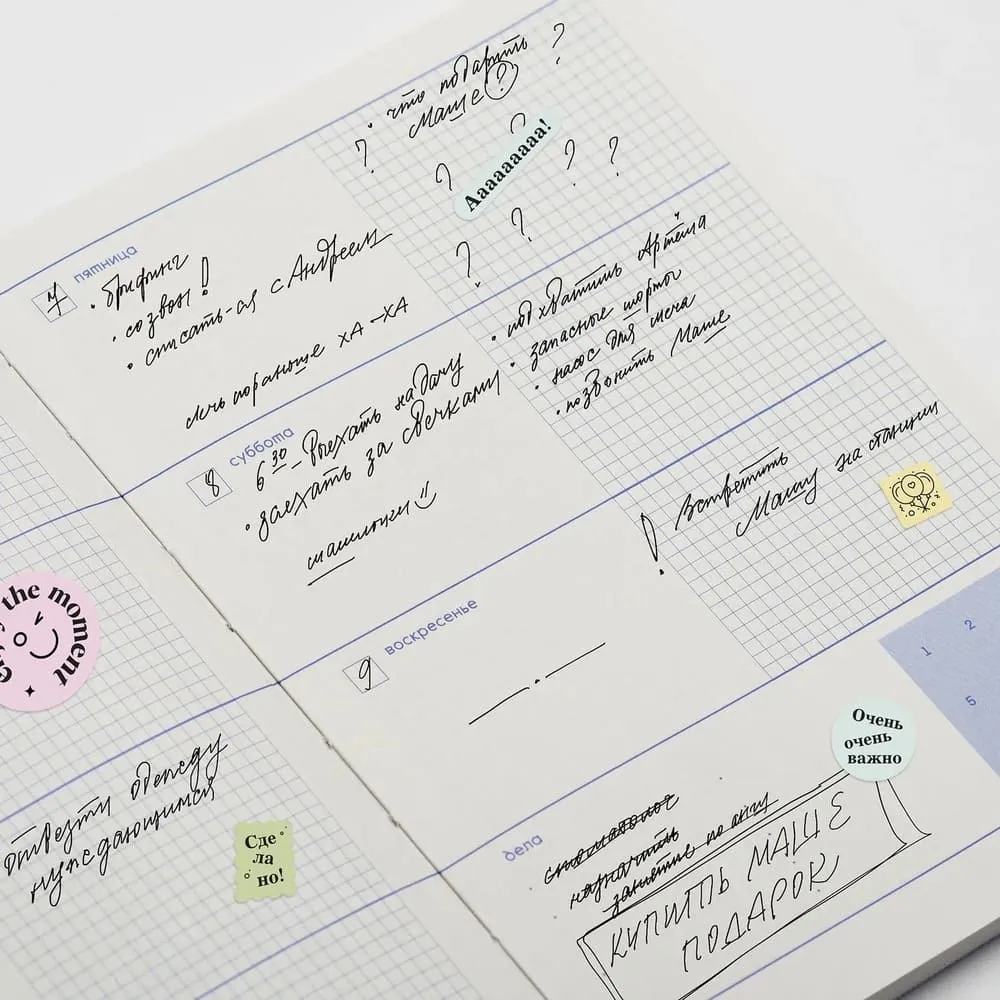 • что подарить
Маше?
?
?
?
?
Ааааааааа!
?
?
?
?
пятница
7
• брифинг
• созвон!
• списать-ся с Андреем
лечь пораньше ХА-ХА
• подхватить Артёма
• запасные шорты
• насос для мяча
• позвонить Маше
суббота
8
6 30 - Выехать на дачу
• заехать за свечками
шашлыки
! Встретить
Машу на станции
воскресенье
9
the moment
отвезти одежду
нуждающимся
Сде
ла
но!
1
2
5
Очень
очень
важно
дела
стоматолог
назначить
занятие по англ
КУПИТЬ МАШЕ
ПОДАРОК